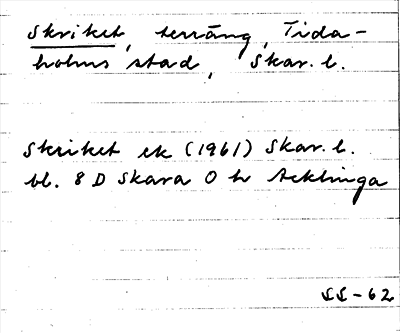 Skriket, terräng, Tida-
holms stad, Skar. l.
Skriket ek (1961) Skar. l.
bl. 8 D Skara O h Acklinga
SS-62